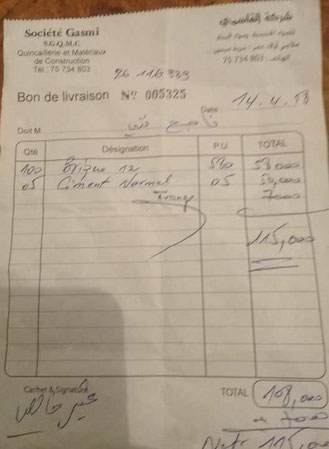 Société Gasmi
S.G.Q.M.C
Quincaillerie et Matériaux
de Construction
Tél : 75 734 803
شركة القاسمي
الهاتف : 75 734 803
96 116 939
Bon de livraison Nº 005325
Date 14.4.
Doit M
Qté Désignation P.U TOTAL
100 Brique 12 580 58,000
05 Ciment Normal 05 50,000
Trans 7,000
115,000
Cachet & Signature
TOTAL 108,000
7,000
Net 115,000